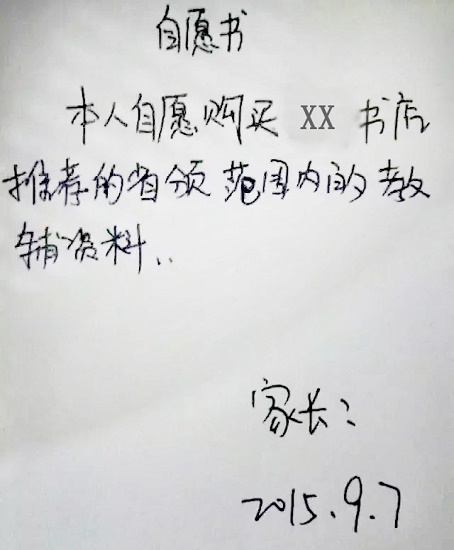 自愿书
本人自愿购买 XX 书店
推荐的省颁范围内的教
辅资料..
家长:
2015.9.7